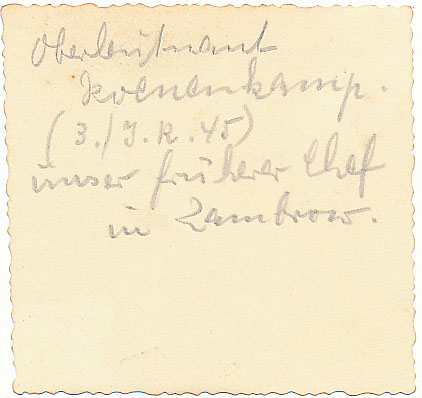 Oberleutnant
Koenenkamp.
(3./J.R. 45)
unser früherer Chef
in Zambrow.